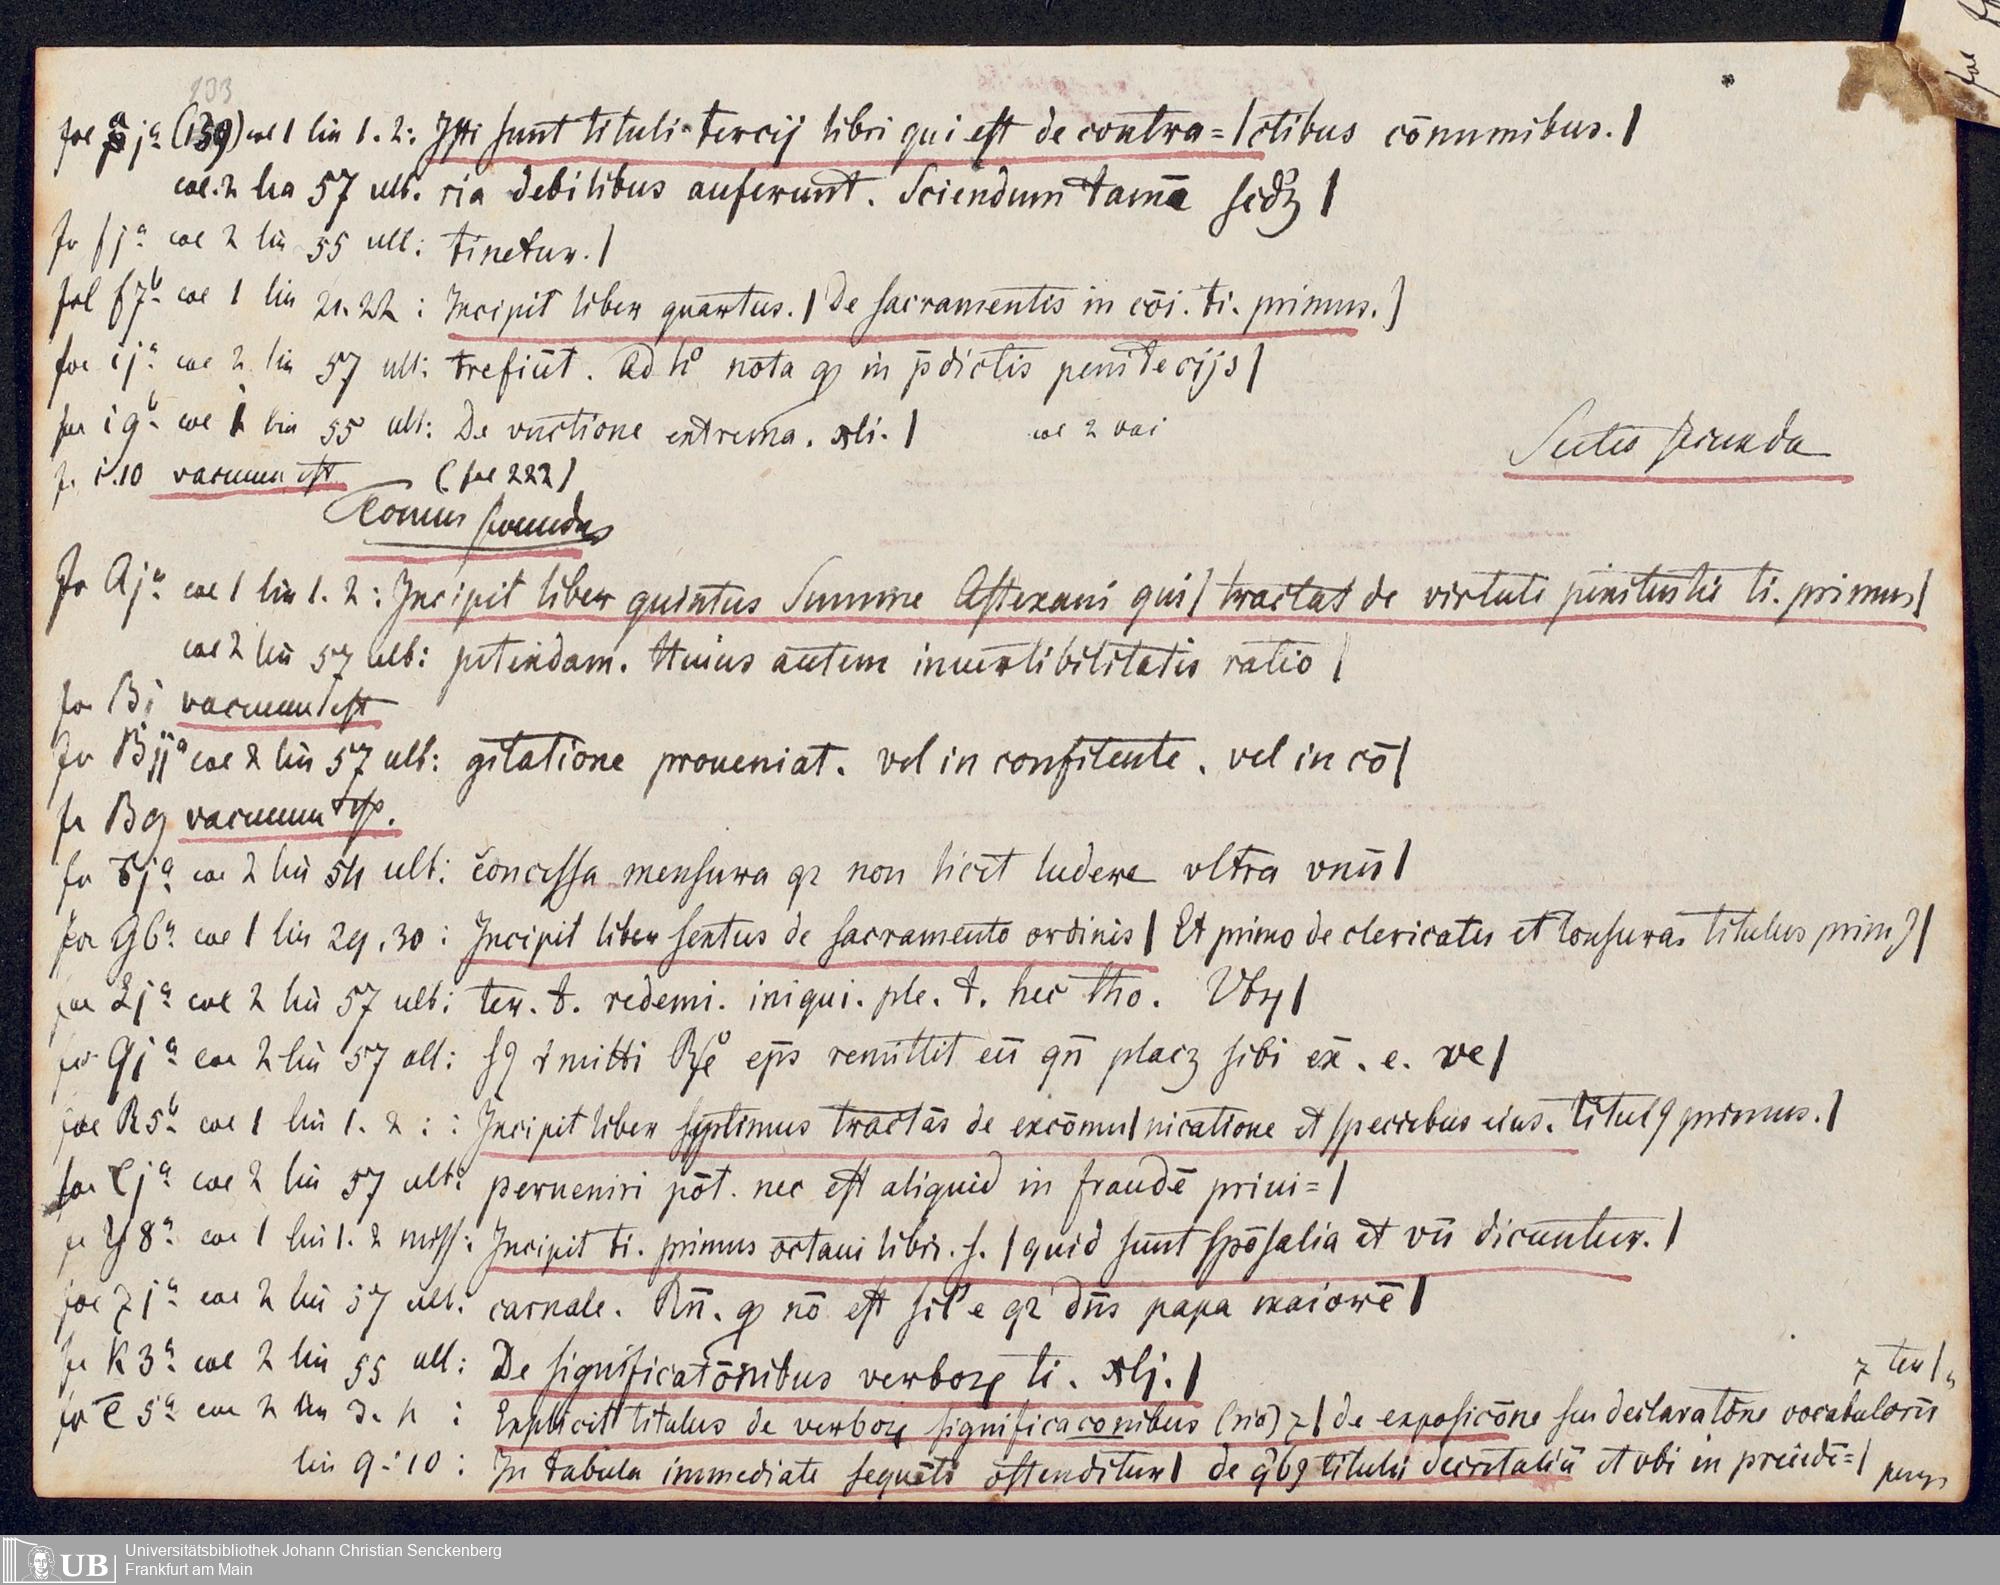 133
fol a jᵃ (139) col 1 lin 1. 2: Isti sunt tituli tercij libri qui est de contra=|ctibus cōnunibus.|
col. 2 lin 57 ult. ria debilibus auferunt. Sciendum tamē scdꝫ |
fo f jᵃ col 2 lin 55 ult: tinetur.|
fol f7ᵇ col 1 lin 21.22 : Incipit liber quartus.| De sacramentis in cōi. ti. primus.|
fol i jᵃ col 2 lin 57 ult: trefiūt. Ad hᵒ nota ꝙ in p̄dictis penitēcijs|
fol i 9ᵇ col 1 lin 55 ult: De vnctione extrema. xli.| col 2 vac
fo i.10 vacuum est (fol 222)
Sectio secunda
Tomus secundus
Fo Ajᵃ col 1 lin 1. 2: Incipit liber quintus Summe Astexani qui| tractat de virtute penitentie ti. primus|
col 2 lin 57 ult: petendam. Huius autem inuertibilitatis ratio |
fo Bj vacuum est
Fo Bijᵃ col 2 lin 57 ult: gitatione proueniat. vel in confitente. vel in cō|
fo B9 vacuum est.
fo Cjᵃ col 2 lin 54 ult: concessa mensura qꝛ non licet ludere vltra vnū|
for G6ᵃ col 1 lin 29.30 : Incipit liber sextus de sacramento ordinis| Et primo de clericatu et tonsura. titulus prim9|
fol Ljᵃ col 2 lin 57 ult: ter. t. redemi. iniqui. ple. t. hec tho. Vbꝝ|
fol Qjᵃ col 2 lin 57 ult: s9 mitti Rᵒ ep̄s remittit eū qn̄ placꝫ sibi ex̄. e. ve|
fol R5ᵇ col 1 lin 1. 2 : Incipit liber septimus tractās de excōmu|nicatione et speciebus eius. titul9 primus.|
for Cjᵃ col 2 lin 57 ult: perueniri pōt. nec est aliquid in fraudē priui=|
fo Y8ᵃ col 1 lin 1. 2 miss: Incipit ti. primus octaui libri. s. |quid sunt spōsalia et vn̄ dicuntur.|
fol Zjᵃ col 2 lin 57 ult: carnale. Rn̄. ꝙ nō est sil'e qꝛ dn̄s papa maiorē|
fo K 3ᵃ col 2 lin 55 ult: De significatōnibus verboꝝ ti. xlj.|
fo C 5ᵃ col 2 lin 3. 4 : Explicit titulus de verboꝝ significaconibus (sic) ⁊| de exposicōne seu declaratōne vocabuloꝝ ⁊ ter|
lin 9-10 : In tabula immediate sequēti ostenditur| de q̄b9 titulis decretaliū et vbi in precedē=|